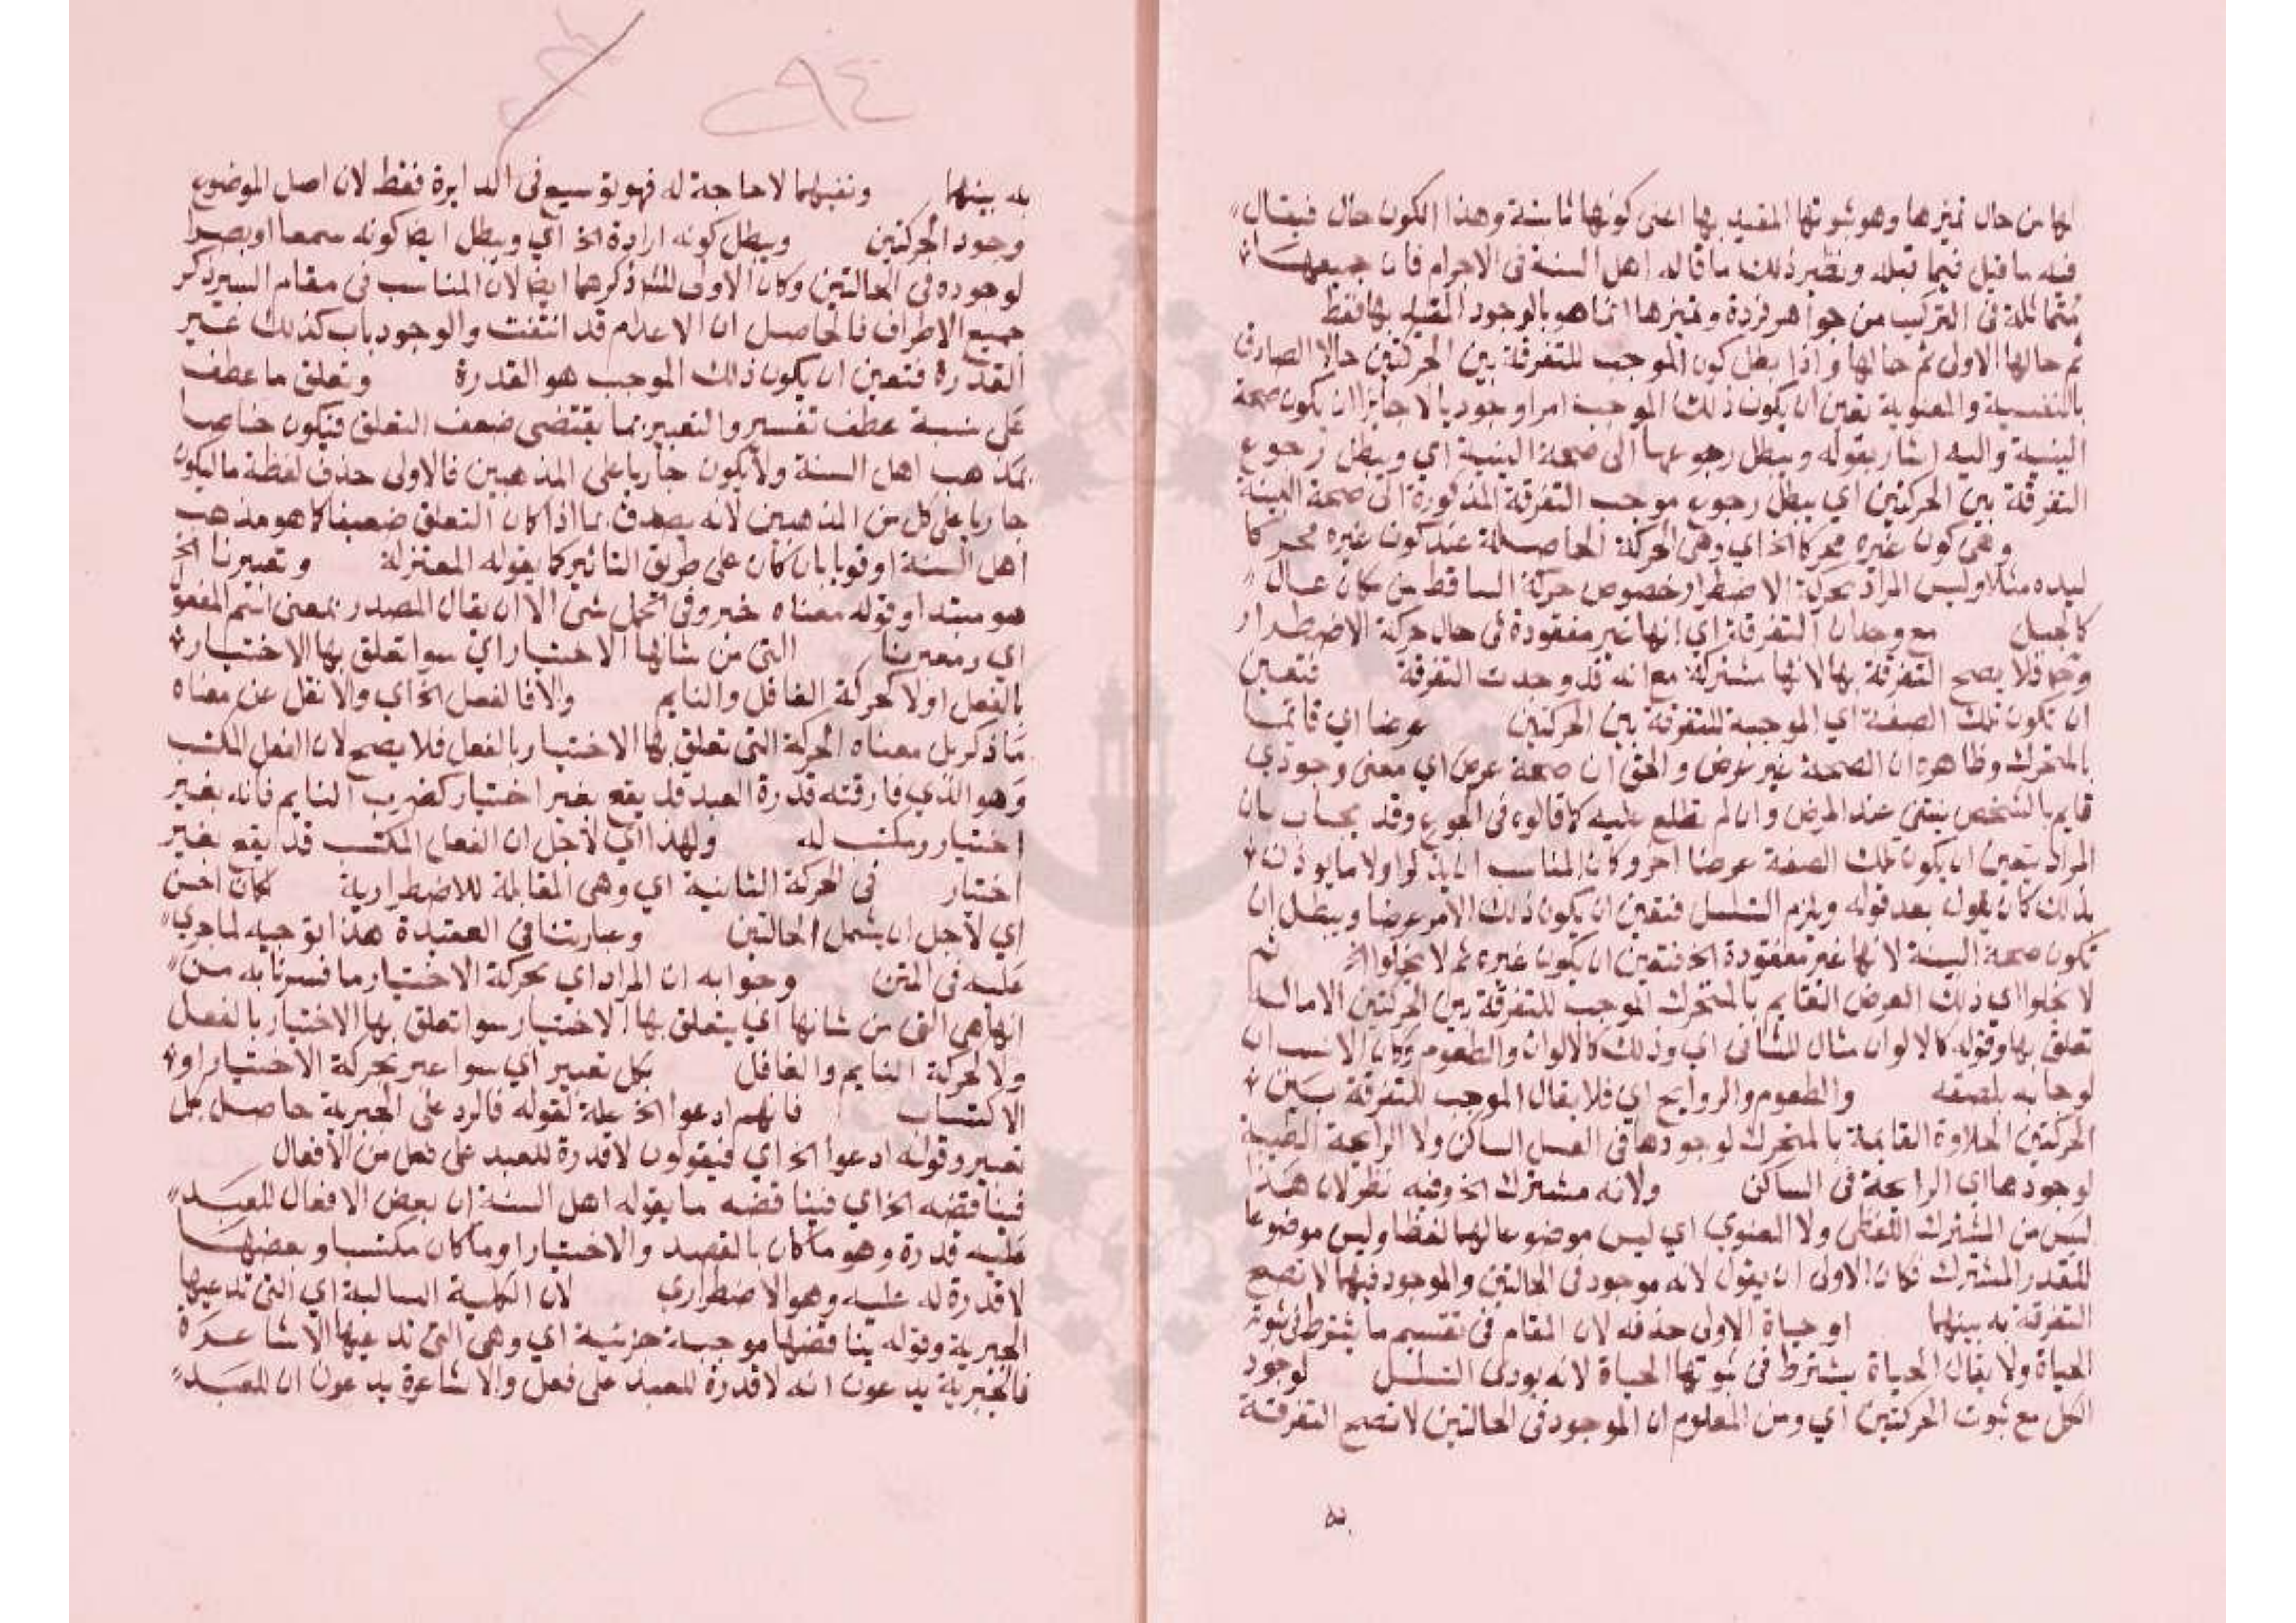 لها من حال تميزها وهو ثبوتها المقيد بها اعنى كونها ثابتة وهذا الكون حال فيقال
فيه ما قيل فيما قبله ونظير ذلك ما قاله اهل السنة فى الاجرام فان جميعها
متماثلة فى التركيب من جواهر فردة وتميزها انما هو بالوجود المقيد بها فقط
ثم حالها الاولى ثم حالها واذا بطل كون الموجب للتفرقة بين الحركتين حالا الصادق
بالنفسية والمعنوية تعين ان يكون ذلك الموجب امرا وجوديا لا جايزا ان يكون صحة
البنية واليه اشار بقوله ويبطل رجوعها الى صحة البنية اي ويبطل رجوع
التفرقة بين الحركتين اي يبطل رجوع موجب التفرقة المذكورة الى صحة البنية
وهى كون غيره محركا الخ اي وهى الحركة الحاصلة عند كون غيره محركا
ليده مثلا وليس المراد بحركة الاضطرار خصوص حركة الساقط من مكان عال
كالجبل مع وجدان التفرقة اي انها غير مفقودة فى حال حركة الاضطرار
وح فلا يصح التفرقة بها لانها مشتركة مع انه قد وجدت التفرقة فتعين
ان تكون تلك الصفة اي الموجبة للتفرقة بين الحركتين عرضا اي قائما
بالمتحرك وظاهره ان الصحة غير عرض والحق ان صحة عرض اي معنى وجودي
قايم بالشخص ينتفى عند المرض وان لم نطلع عليه كما قالوه فى الجوع وقد يجاب بان
المراد يتعين ان يكون تلك الصفة عرضا اخر وكان المناسب ان يذكر اولا ما يوذن
بذلك كان يقول بعد قوله ويلزم التسلسل فتعين ان يكون ذلك الامر عرضا ويبطل ان
تكون صحة البنية لانها غير مفقودة الخ فتعين ان يكون غيره ثم لا يخلوا الخ ثم
لا يخلوا اي ذلك العرض القايم بالمتحرك الموجب للتفرقة بين الحركتين الاما الـ
تعلق بها وقوله كالالوان مثال للثانى اي وذلك كالالوان والطعوم وكان الانسب ان
لو جا به بلصقه والطعوم والروايح اي فلا يقال الموجب للتفرقة بين
الحركتين الحلاوة القايمة بالمتحرك لوجودها فى العسل الساكن ولا الرايحة الطيبة
لوجودها اي الرايحة فى الساكن ولانه مشترك الخ وفيه نظر لان هذا
ليس من المشترك اللفظى ولا المعنوي اي ليس موضوعا لهما لفظا وليس موضوعا
للقدر المشترك فكان الاولى ان يقول لانه موجود فى الحالتين والموجود فيهما لا تصح
التفرقة به بينهما او حياة الاولى حذفه لان المقام فى تقسيم ما يشترط فى ثبوته
الحياة ولا يقال الحياة يشترط فى ثبوتها الحياة لانه يودى التسلسل لوجود
الكل مع ثبوت الحركتين اي ومن المعلوم ان الموجود فى الحالتين لا تصح التفرقة
به
به بينهما ونفيهما لا حاجة له فهو توسيع فى الدايرة فقط لان اصل الموضوع
وجود الحركتين ويبطل كونه ارادة الخ اي ويبطل ايضا كونه سمعا او بصرا
لوجوده فى الحالتين وكان الاولى للشـ ذكرهما ايضا لان المناسب فى مقام السبر ذكر
جميع الاطراف فالحاصل ان الاعدام قد انتفت والوجود باب كذلك غير
القدرة فتعين ان يكون ذلك الموجب هو القدرة وتعلق ما عطف
على نسبة عطف تفسير والتعبير بما يقتضى ضعف التعلق فيكون خاصا
بمذهب اهل السنة ولا يكون جاريا على المذهبين فالاولى حذف لفظة ما ليكون
جاريا على كل من المذهبين لانه يصدق بما اذا كان التعلق ضعيفا كما هو مذهب
اهل السنة او قويا بان كان على طريق التاثير كما يقوله المعتزلة وتعبيرنا الخ
هو مبتدا وقوله معناه خبر وفى الحمل شى الا ان يقال المصدر بمعنى اسم المفعول
اي ومعبرنا التى من شانها الاختيار اي سوا تعلق بها الاختيار
بالفعل او لا كحركة الغافل والنايم والا فالفعل الخ اي والا نقل عن معناه
ما ذكر بل معناه الحركة التى تعلق بها الاختيار بالفعل فلا يصح لان الفعل المكتسب
وهو الذي فارقته قدرة العبد قد يقع بغير اختيار كضرب النايم فانه بغير
اختيار ومكتسب له ولهذا اي لاجل ان الفعل المكتسب قد يقع بغير
اختيار فى الحركة الثانية اي وهى المقابلة للاضطرارية لكان احسن
اي لاجل ان يشمل الحالتين وعبارتنا فى العقيدة هذا توجيه لما جري
عليه فى المتن وجوابه ان المراد اي بحركة الاختيار ما فسرنا به من
انها هى التى من شانها اي يتعلق بها الاختيار سوا تعلق بها الاختيار بالفعل
ولا كحركة النايم والغافل بكل تعبير اي سوا عبر بحركة الاختيار او
الاكتساب فانهم ادعوا الخ علة لقوله فالرد على الجبرية حاصل بكل
تعبير وقوله ادعوا الخ اي فيقولون لا قدرة للعبد على فعل من الافعال
فيناقضه الخ اي فيناقضه ما يقوله اهل السنة ان بعض الافعال للعبد
عليه قدرة وهو ما كان بالقصد والاختيار او ما كان مكتسبا وبعضها
لا قدرة له عليه وهو الاضطراري لان الكلية السالبة اي التى تدعيها
الجبرية وقوله يناقضها موجبة جزئية اي وهى التى تدعيها الاشاعرة
فالجبرية يدعون انه لا قدرة للعبد على فعل والاشاعرة يدعون ان للعبد